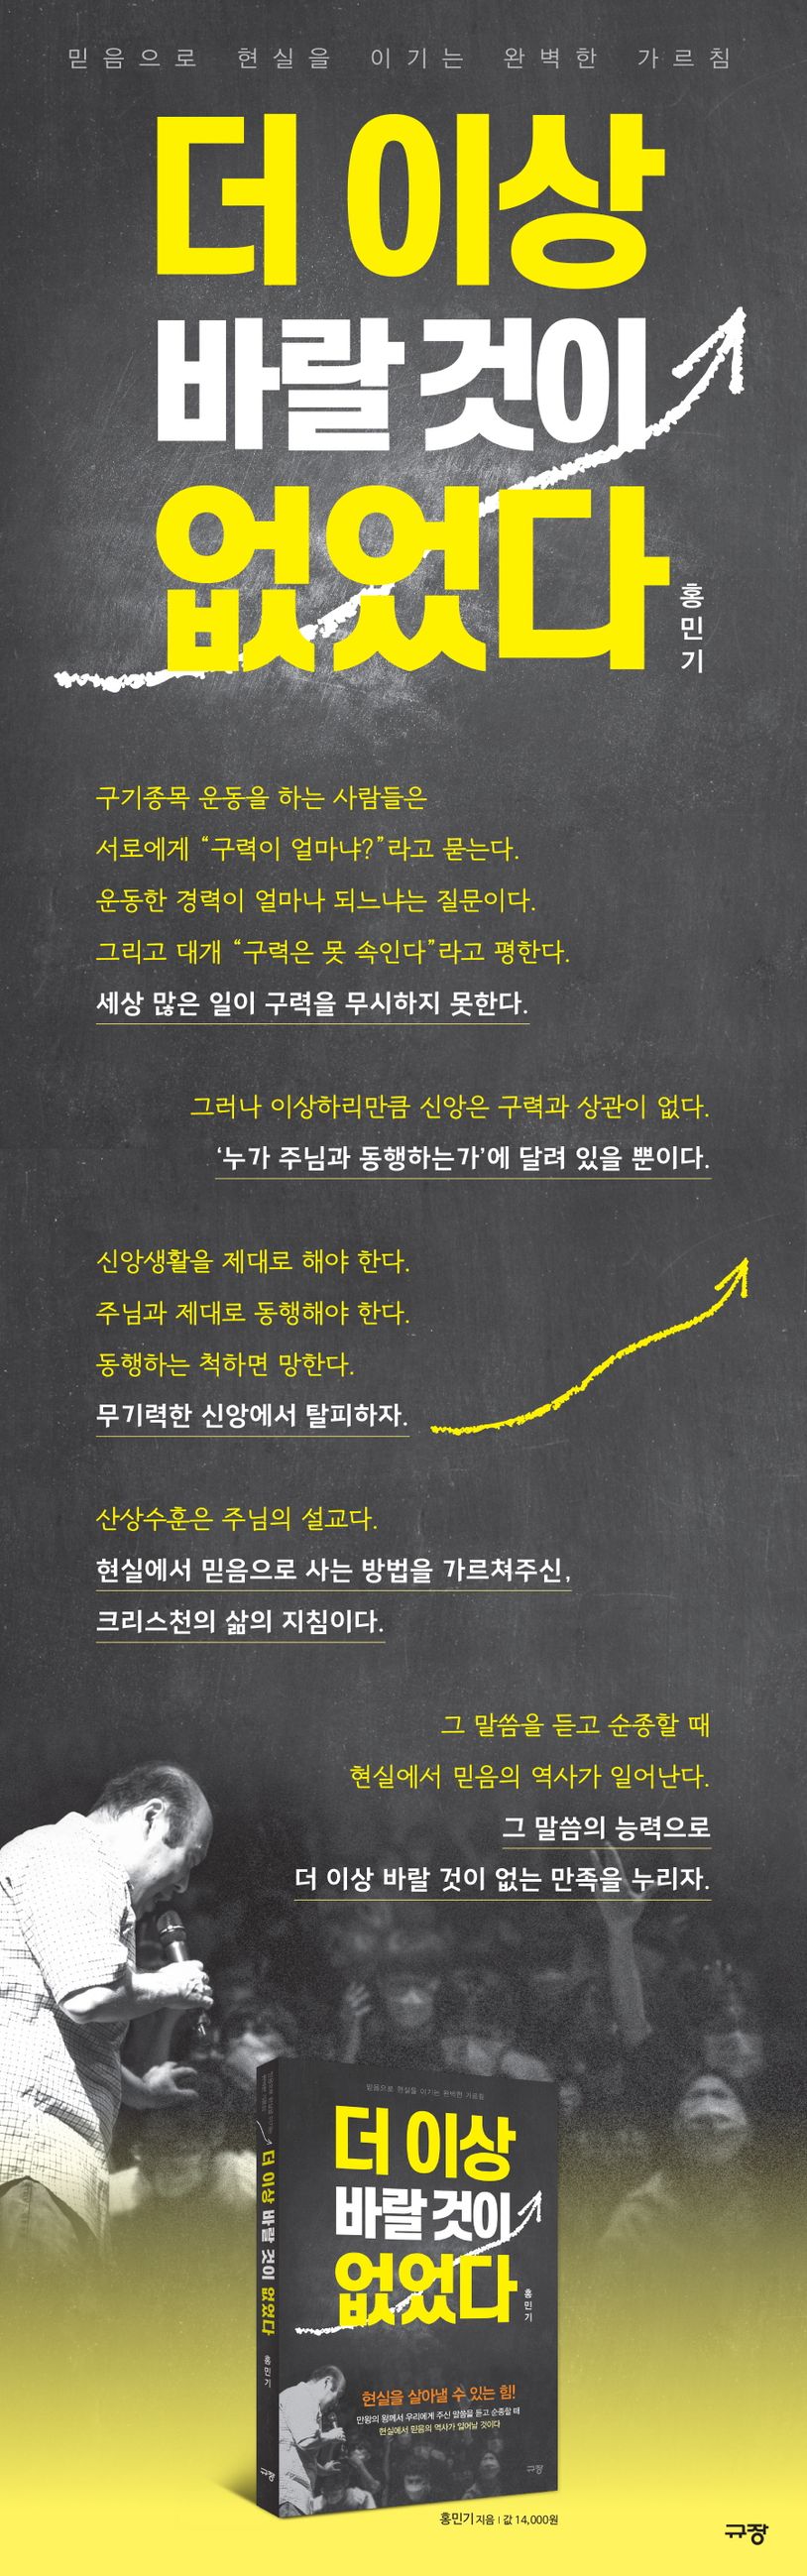 믿음으로 현실을 이기는 완벽한 가르침
더 이상
바랄 것이
없었다
홍민기
구기종목 운동을 하는 사람들은
서로에게 “구력이 얼마냐?”라고 묻는다.
운동한 경력이 얼마나 되느냐는 질문이다.
그리고 대개 “구력은 못 속인다”라고 평한다.
세상 많은 일이 구력을 무시하지 못한다.
그러나 이상하리만큼 신앙은 구력과 상관이 없다.
‘누가 주님과 동행하는가’에 달려 있을 뿐이다.
신앙생활을 제대로 해야 한다.
주님과 제대로 동행해야 한다.
동행하는 척하면 망한다.
무기력한 신앙에서 탈피하자.
산상수훈은 주님의 설교다.
현실에서 믿음으로 사는 방법을 가르쳐주신,
크리스천의 삶의 지침이다.
그 말씀을 듣고 순종할 때
현실에서 믿음의 역사가 일어난다.
그 말씀의 능력으로
더 이상 바랄 것이 없는 만족을 누리자.
믿음으로 현실을 이기는 완벽한 가르침
더 이상
바랄 것이
없었다
홍민기
더 이상 바랄 것이 없었다
홍민기
규장
현실을 살아낼 수 있는 힘!
만왕의 왕께서 우리에게 주신 말씀을 듣고 순종할 때
현실에서 믿음의 역사가 일어날 것이다
규장
홍민기 지음 | 값 14,000원
규장